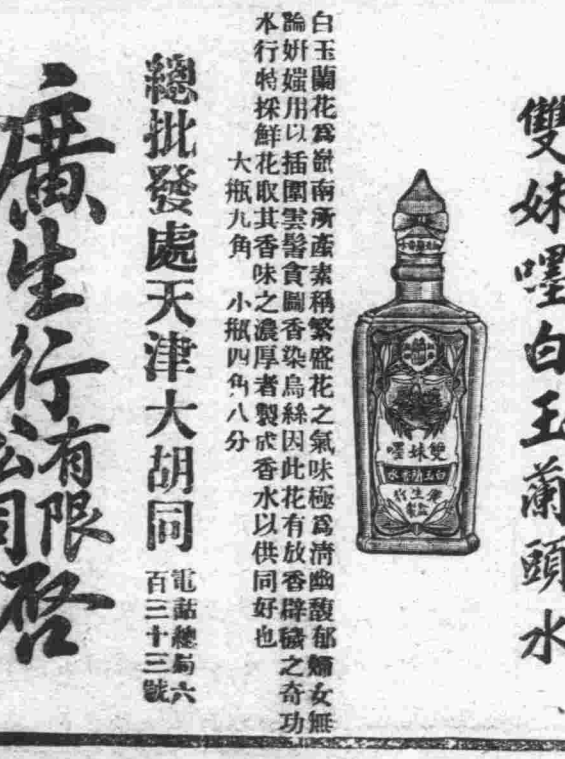 雙妹嚜白玉蘭頭水
雙妹嚜
白玉蘭香水
廣生行
監製
白玉蘭花爲嶺南所產素稱繁盛花之氣味極爲清幽馥郁婦女無
論妍媸用以插圍雲髻貪圖香染烏絲因此花有放香辟穢之奇功
本行特採鮮花取其香味之濃厚者製成香水以供同好也
大瓶九角　小瓶四角八分
總批發處天津大胡同
電話總局六
百三十三號
廣生行有限
公司啓